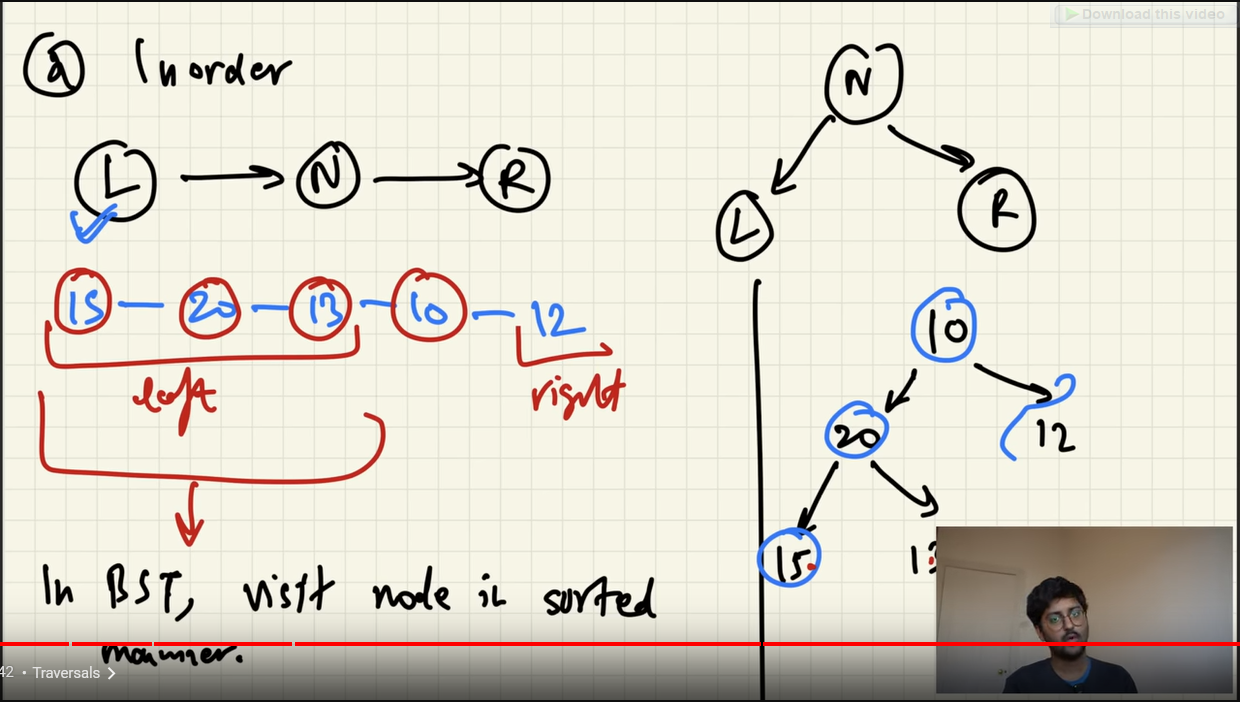 Download this video
a Inorder
L N R
15 — 20 — 13 — 10 — 12
left right
In BST, visit node in sorted
manner.
N
L R
10
20 12
15 13
42 • Traversals